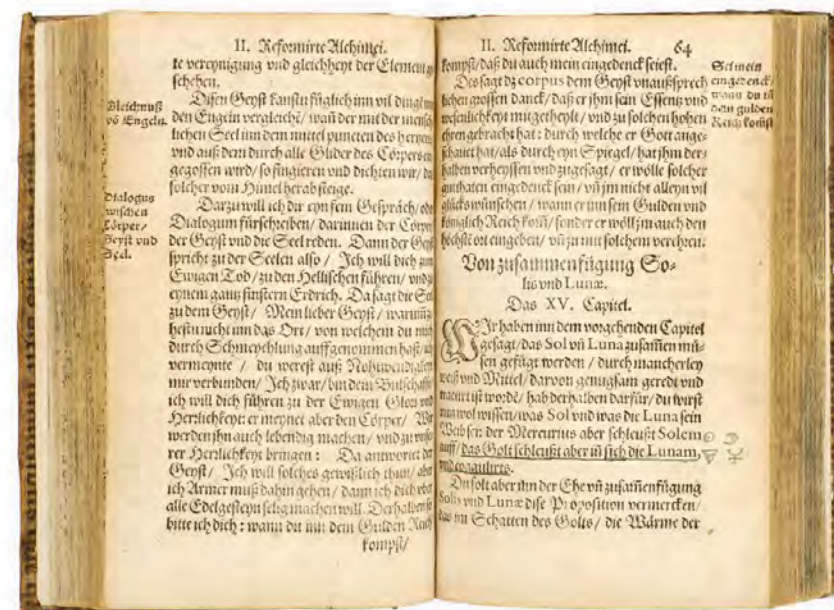 II. Reformirte Alchimei.
te vereynigung vnd gleichheyt der Element
schehen.
Disen Geyst kanstu füglich inn vil dinge
den Engeln vergleichē/ wañ der mit der
lichen Seel inn dem mittel puncten des hertzens
vnd auß dem durch alle Glider des Cörpers
gegossen wird/ so fingieren vnd dichten wir/
solcher vom Himel herab steige.
Gleichnuß
vō Engeln.
Darzu will ich dir eyn fem Gespräch/
Dialogum fürschreiben/ darinnen der Cörper
der Geyst vnd die Seel reden. Dann der Geyst
spricht zu der Seelen also/ Jch will dich zum
Ewigen Tod/ zu den Hellischen führen/ vnd
eynem gantz finstern Erdrich. Da sagt die
zu dem Geyst/ Mein lieber Geyst/ warumb
nicht inn das Ort/ von welchem du mich
durch Schmeychlung auffgenommen hast/
vermeynte/ du werest auß Nohtwendigkeit
mir verbunden/ Jch zwar/ bin dem
ich will dich führen zu der Ewigen Glori vnd
Herrlichkeyt: er meynet aber den Cörper/ Wir
werden jhn auch lebendig machen/ vnd zu
rer Herrlichkeyt bringen: Da antwortet der
Geyst/ Jch will solches gewißlich thun/ aber
ich Armer muß dahin gehen/ dann ich dich
alle Edelgesteyn selig machen will. Derhalben
bitte ich dich: wann du inn dem Gulden Reich
kompst/
Dialogus
zwischen
Cörper/
Geyst vnd
Seel.
II. Reformirte Alchimei. 64
kompst/ daß du auch mein eingedenck seiest.
Des sagt dz corpus dem Geyst vnaußsprech
lichen grossen danck/ daß er jhm sein Essentz vnd
wesenlichkeyt mitgetheylt/ vnd zu solchen hohen
ehren gebracht hat: durch welche er Gott ange-
schauet hat/ als durch eyn Spiegel/ hat jhm der-
halben verheyssen vnd zugesagt/ er wölle solcher
gutthaten eingedenck sein/ vñ jm nicht alleyn vil
glücks wünschen/ wann er inn sein Gulden vnd
königlich Reich kom̄/ sonder er wöll jm auch den
höchstē ort eingeben/ vñ jn mit solchem verehren.
Sei mein
eingedenck/
wann du iñ
dein gulden
Reich kom̄st
Von zusammenfügung So-
lis vnd Lunæ.
Das XV. Capitel.
WJr haben inn dem vorgehenden Capitel
gesagt/ das Sol vñ Luna zusam̄en müs-
sen gefügt werden/ durch mancherley
weiß vnd Mittel/ darvon genugsam geredt vnd
tractirt ist wordē/ hab derhalben darfür/ du wirst
nun wol wissen/ was Sol vnd was die Luna sein
Weib sei: der Mercurius aber schleußt Solem ☉ ☽
auff/ das Golt schleußt aber iñ sich die Lunam, 🜄 ☿
vnd coagulirts.
Du solt aber inn der Ehe vñ zusam̄enfügung
Solis vnd Lunæ dise Proposition vermercken/
das im Schatten des Golts/ die Wärme der